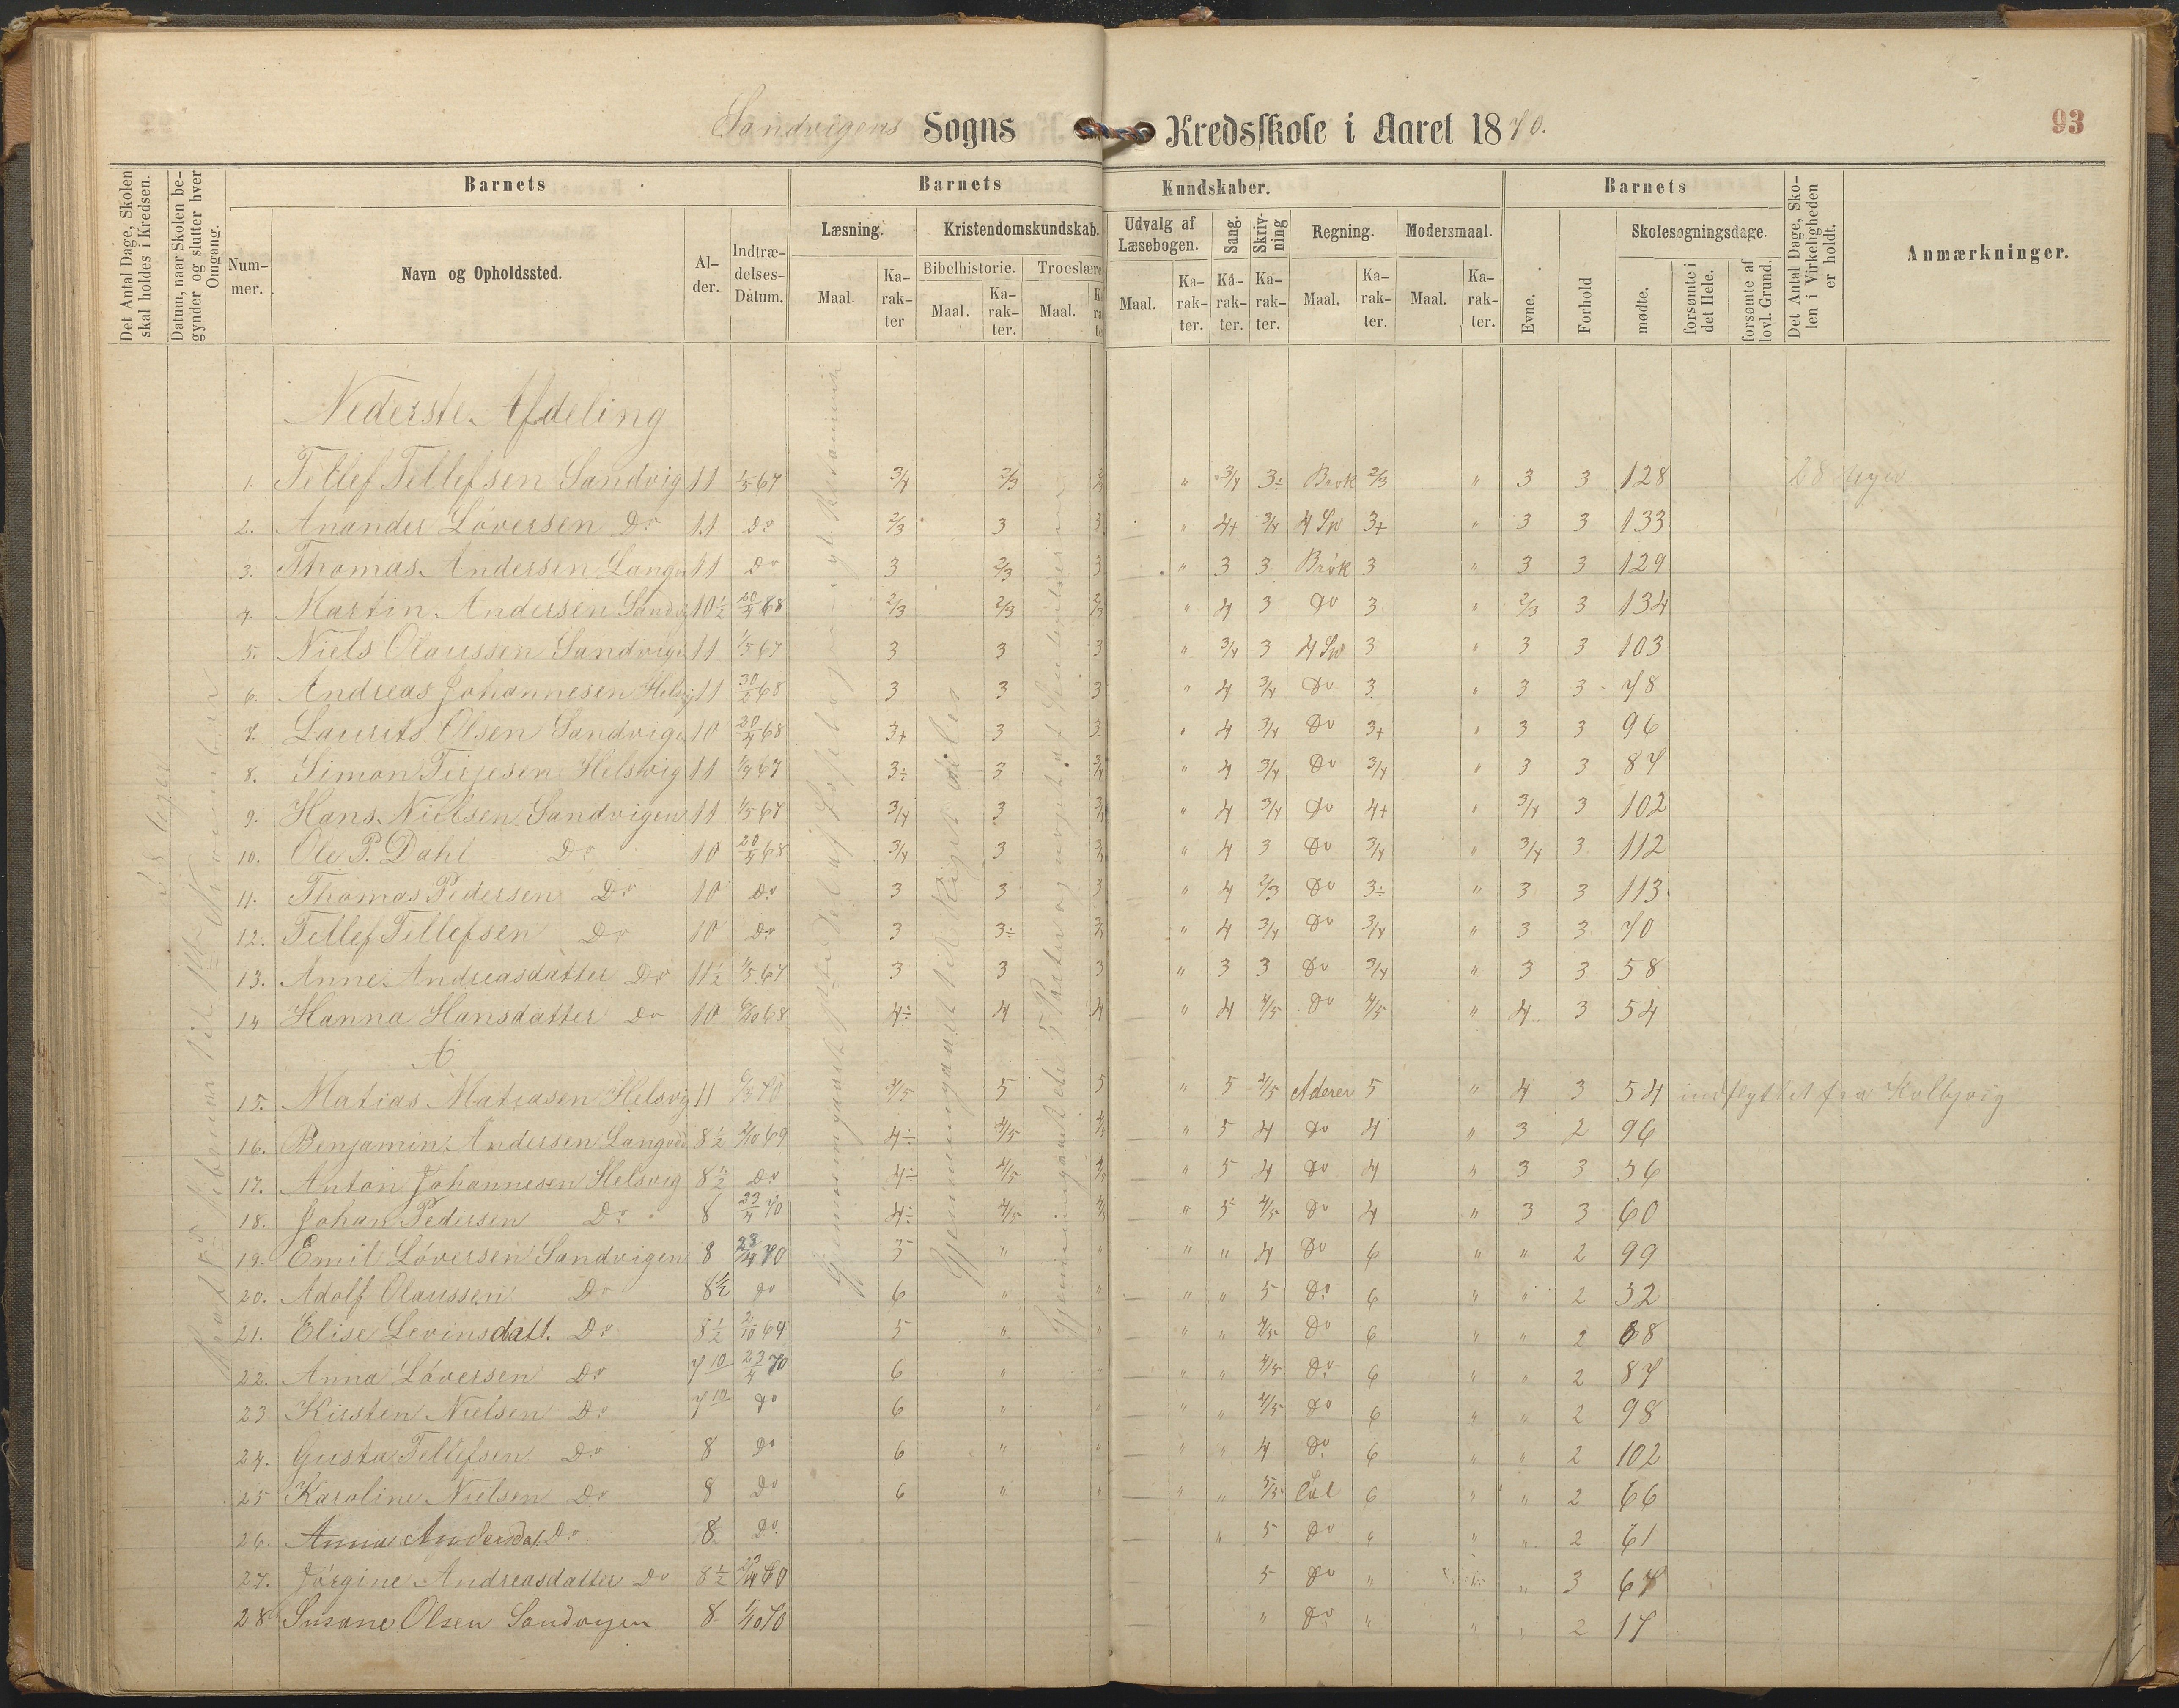 Sandvigens Sogns Kredsskole i Aaret 1870.
93
Det Antal Dage, Skolen skal holdes i Kredsen.
Datum, naar Skolen begynder og slutter hver Omgang.
Barnets
Barnets
Kundskaber.
Barnets
Det Antal Dage, Skolen i Virkeligheden er holdt.
Anmærkninger.
Nummer.
Navn og Opholdssted.
Alder.
Indtrædelses-Datum.
Læsning.
Kristendomskundskab.
Udvalg af Læsebogen.
Sang.
Skrivning
Regning.
Modersmaal.
Evne.
Forhold
Skolesøgningsdage.
Maal.
Karakter
Bibelhistorie.
Troeslære
Maal.
Karakter.
Maal.
Maal.
Karakter.
Karakter.
Karakter.
Maal.
Karakter.
Maal.
Karakter.
mødte.
forsømte i det Hele.
forsømte af lovl. Grund.
Nederste Afdeling
1. Tellef Tellefsen Sandvig 11 1/5 67 3/4 2/3 " 3/4 3÷ Brøk 2/3 " 3 3 128 28 Uger
2. Anander Løversen Do 11 Do 2/3 3 3 " 4+ 3/4 4 Sp 3+ " 3 3 133
3. Thomas Andersen Lang 11 Do 3 2/3 3 " 3 3 Brøk 3 " 3 3 129
4. Martin Andersen Sandv 10 1/2 20/4 68 2/3 2/3 2/3 " 4 3 Do 3 " 2/3 3 134
5. Niels Olaussen Sandvig 11 1/5 67 3 3 3 " 3/4 3 4 Sp 3 " 3 3 103
6. Andreas Johannesen Helsvig 11 30/2 68 3 3 3 " 4 3/4 Do 3 " 3 3 78
7. Laurits Olsen Sandvig 10 20/4 68 3+ 3 3 " 4 3/4 Do 3+ " 3 3 96
8. Simon Terjesen Helsvig 11 1/9 67 3÷ 3 3/4 " 4 3/4 Do 3/4 " 3 3 87
9. Hans Nielsen Sandvigen 11 1/5 67 3/4 3 3/4 " 4 3/4 Do 4+ " 3/4 3 102
10. Ole P. Dahl Do 10 20/4 68 3/4 3 3/4 " 4 3 Do 3/4 " 3/4 3 112
11. Thomas Pedersen Do 10 Do 3 3 3 " 4 2/3 Do 3÷ " 3 3 113
12. Tellef Tellefsen Do 10 Do 3 3÷ 3/4 " 4 3/4 Do 3/4 " 3 3 70
13. Anne Andreasdatter Do 11 1/2 1/5 67 3 3 3 " 3 3 Do 3/4 " 3 3 58
14 Hanna Hansdatter Do 10 6/10 68 4÷ 4 4 " 4 4/5 Do 4/5 " 4 3 54
A
15. Matias Matiasen Helsvig 11 6/3 70 4/5 5 5 " 5 4/5 Aderer 5 " 4 3 54 indflyttet fra Kolbjvig
16. Benjamin Andersen Langød 8 1/2 2/10 69 4÷ 4/5 4/5 " 5 4 Do 4 " 3 2 96
17. Anton Johannesen Helsvig 8 1/2 Do 4÷ 4/5 4/5 " 5 4 Do 4 " 3 3 56
18. Johan Pedersen Do 8 23/4 70 4÷ 4/5 4/5 " 5 4/5 Do 4 " 3 3 60
19. Emil Løversen Sandvigen 8 23/4 70 5 " " " " 4 Do 6 " " 2 99
20. Adolf Olaussen Do 8 1/2 Do 6 " " " " 5 Do 6 " " 2 32
21. Elise Levinsdatt. Do 8 1/2 2/10 69 5 " " " " 4/5 Do 6 " " 2 68
22. Anna Løversen Do 7 10 23/4 70 6 " " " " 4/5 Do 6 " " 2 87
23 Kirsten Nielsen Do 7 10 Do 6 " " " " 4/5 Do 6 " " 2 98
24. Gusta Tellefsen Do 8 Do 6 " " " " 4 Do 6 " " 2 102
25 Karoline Nielsen Do 8 Do 6 " " " " 5/5 6 " " 2 66
26. Anna Andersdat. Do 8 Do " 5 Do " " " 2 61
27. Jørgine Andreasdatter Do 8 1/2 23/4 70 5 Do " " 3 67
28 Susane Olsen Sandvigen 8 1/10 70 " Do " " " 2 17
28 Uger
Fra 28de Februar til November
Gjennemgaaet